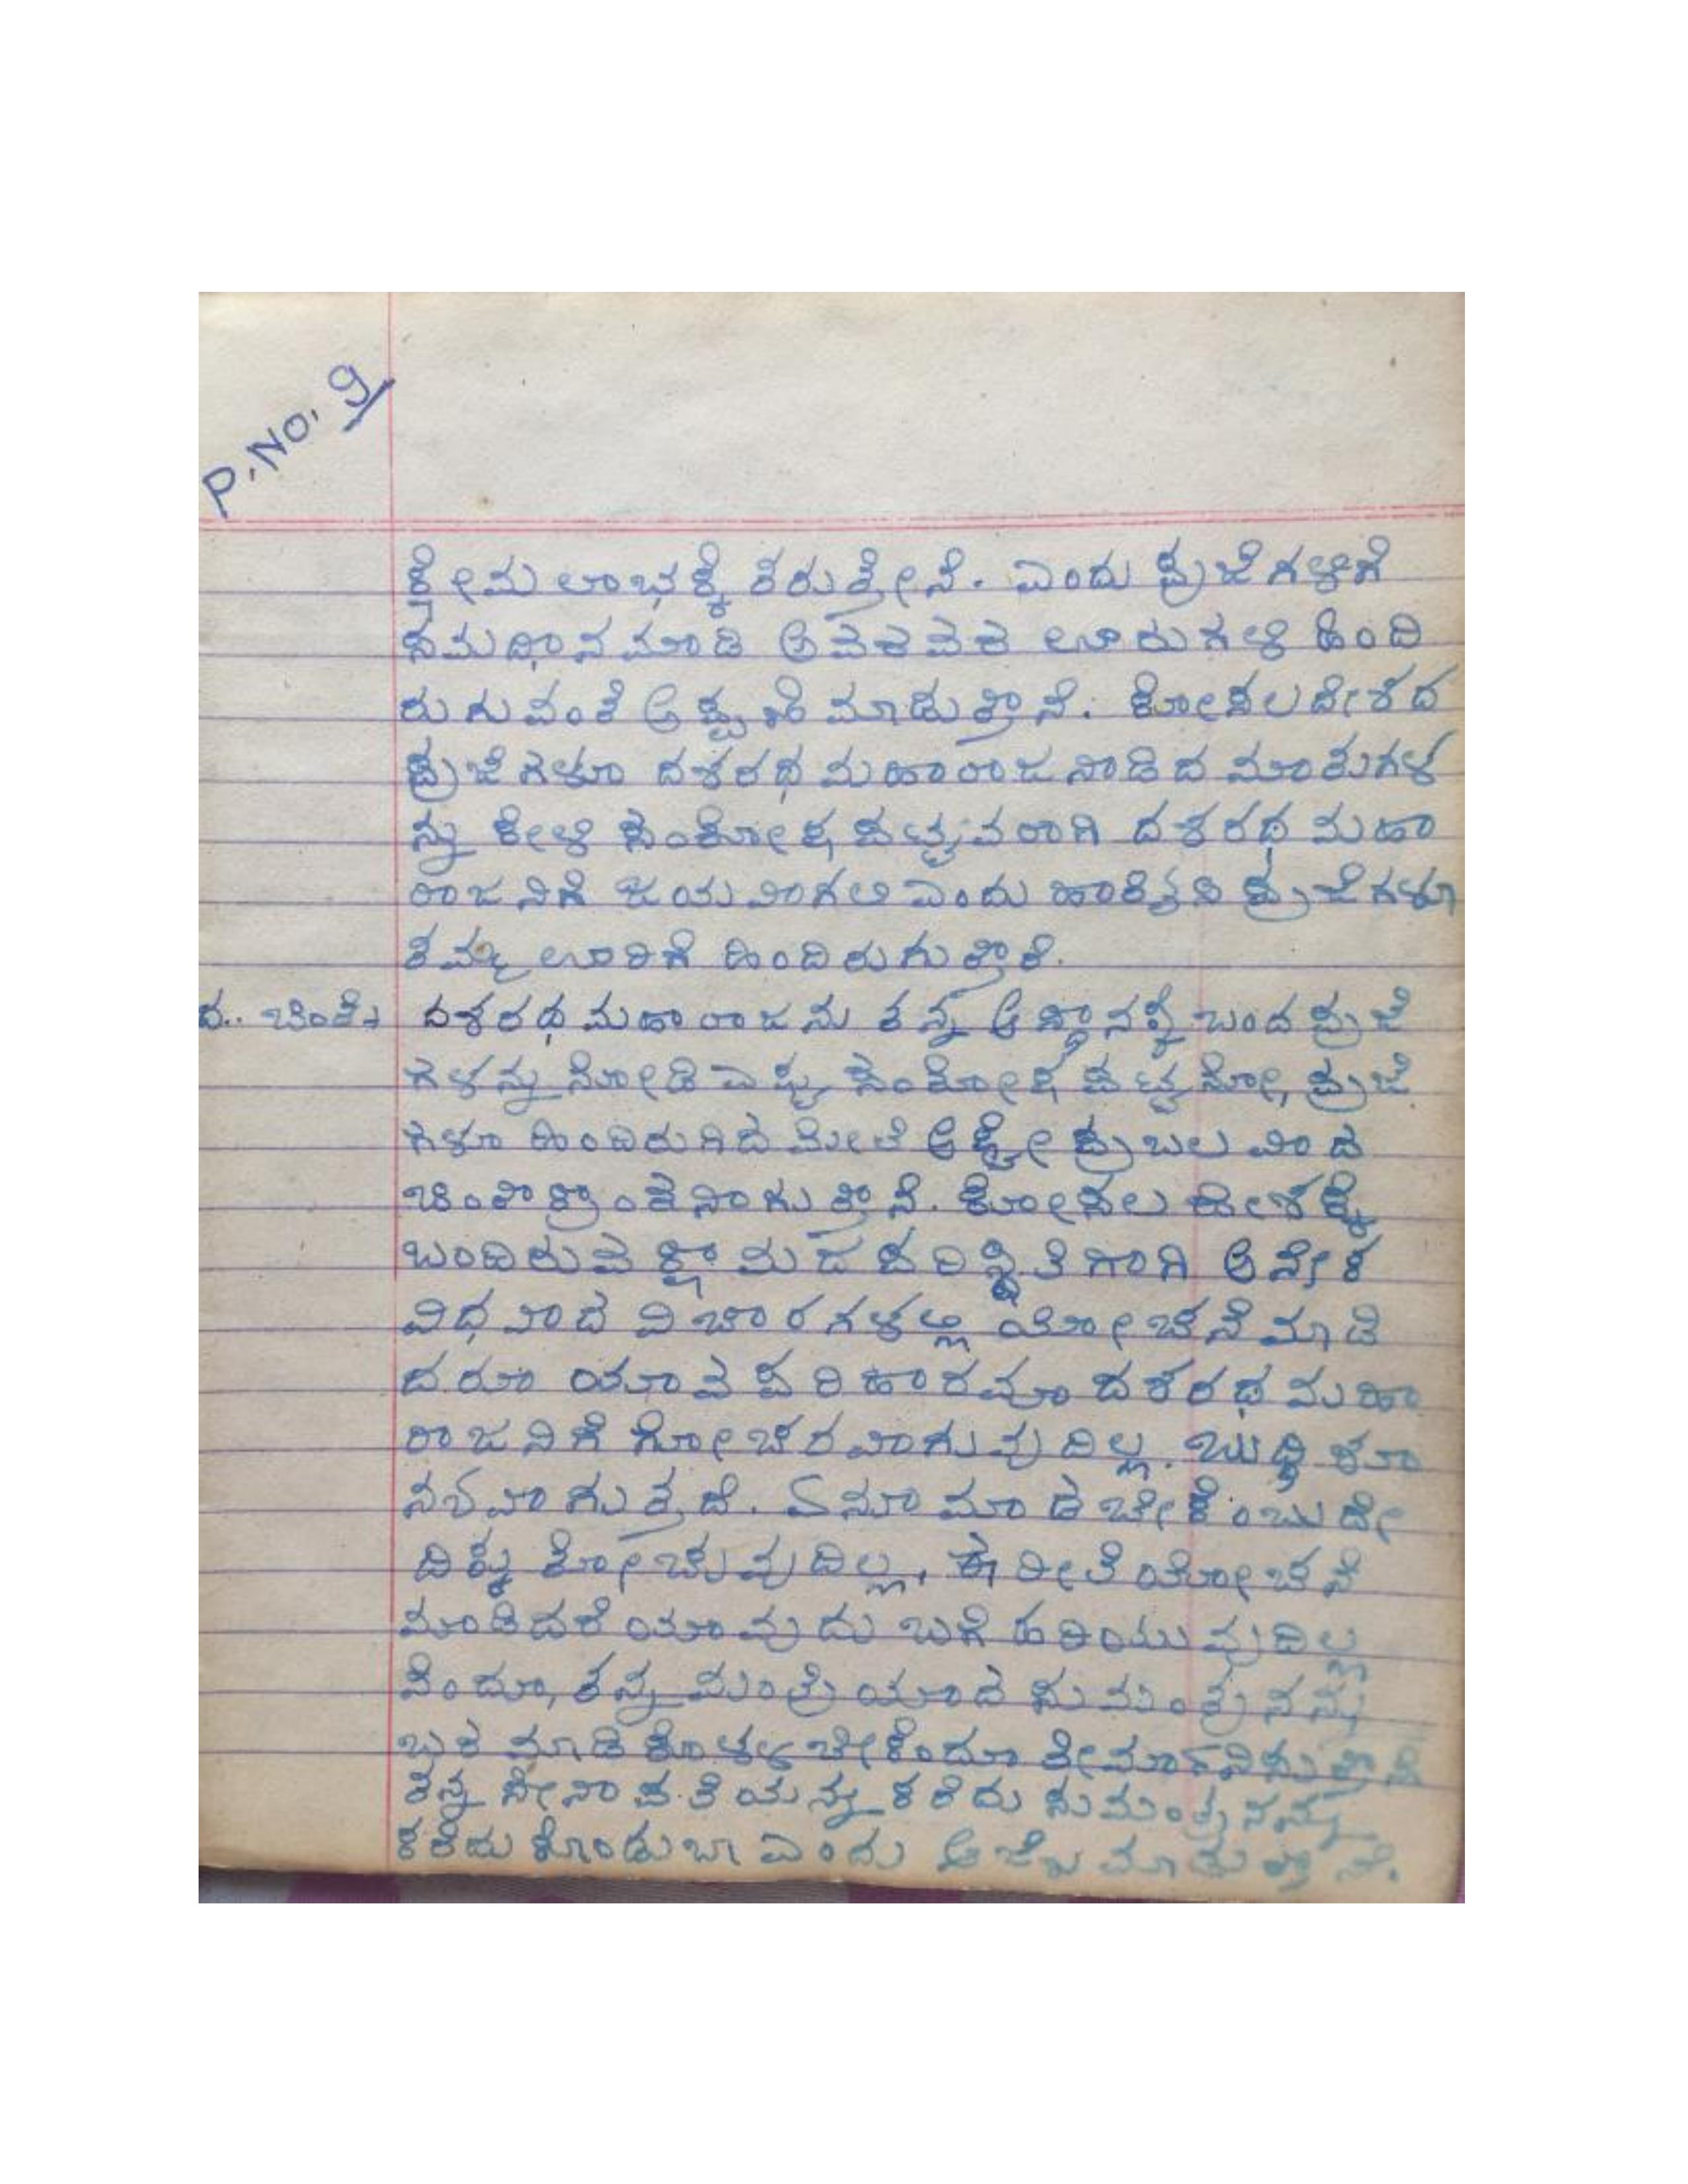 P.No. 9
ಕ್ಷೇಮ ಲಾಭಕ್ಕೆ ತರುತ್ತೇನೆ. ಎಂದು ಪ್ರಜೆಗಳಿಗೆ
ಸಮಧಾನ ಮಾಡಿ ಅವರವರ ಊರುಗಳಿಗೆ ಹಿಂದಿ
ರುಗುವಂತೆ ಅಪ್ಪಣೆ ಮಾಡುತ್ತಾನೆ. ಕೋಸಲದೇಶದ
ಪ್ರಜೆಗಳೂ ದಶರಥ ಮಹಾರಾಜನಾಡಿದ ಮಾತುಗಳ
ನ್ನು ಕೇಳಿ ಸಂತೋಷ ಪಟ್ಟವರಾಗಿ ದಶರಥ ಮಹಾ
ರಾಜನಿಗೆ ಜಯವಾಗಲಿ ಎಂದು ಹಾರೈಸಿ ಪ್ರಜೆಗಳೂ
ತಮ್ಮ ಊರಿಗೆ ಹಿಂದಿರುಗುತ್ತಾರೆ.
ದ.. ಚಿಂತೆ: ದಶರಥ ಮಹಾರಾಜನು ತನ್ನ ಆಸ್ಥಾನಕ್ಕೆ ಬಂದ ಪ್ರಜೆ
ಗಳನ್ನು ನೋಡಿ ಎಷ್ಟು ಸಂತೋಷ ಪಟ್ಟನೋ, ಪ್ರಜೆ
ಗಳೂ ಹಿಂದಿರುಗಿದ ಮೇಲೆ ಅಷ್ಟೇ ಪ್ರಬಲವಾದ
ಚಿಂತಾಕ್ರಾಂತನಾಗುತ್ತಾನೆ. ಕೋಸಲ ದೇಶಕ್ಕೆ
ಬಂದಿರುವ ಕ್ಷಾಮದ ಪರಿಸ್ಥಿತಿಗಾಗಿ ಅನೇಕ
ವಿಧವಾದ ವಿಚಾರಗಳಲ್ಲಿ ಯೋಚನೆ ಮಾಡಿ
ದರೂ ಯಾವ ಪರಿಹಾರವೂ ದಶರಥ ಮಹಾ
ರಾಜನಿಗೆ ಗೋಚರವಾಗುವುದಿಲ್ಲ. ಬುದ್ಧಿ ಶೂ
ನ್ಯವಾಗುತ್ತದೆ. ಏನೂ ಮಾಡಬೇಕೆಂಬುದೇ
ದಿಕ್ಕು ತೋಚುವುದಿಲ್ಲ, ಈ ರೀತಿ ಯೋಚನೆ
ಮಾಡಿದರೆ ಯಾವುದು ಬಗೆ ಹರಿಯುವುದಿಲ್ಲ
ನೆಂದೂ, ತನ್ನ ಮಂತ್ರಿಯಾದ ಸುಮಂತ್ರನನ್ನು
ಬರ ಮಾಡಿಕೊಳ್ಳಬೇಕೆಂದೂ ತೀರ್ಮಾನಿಸುತ್ತಾನೆ
ತನ್ನ ಸೇನಾಪತಿಯನ್ನು ಕರೆದು ಸುಮಂತ್ರನನ್ನು
ಕರೆದು ಕೊಂಡು ಬಾ ಎಂದು ಆಜ್ಞೆ ಮಾಡುತ್ತಾನೆ.